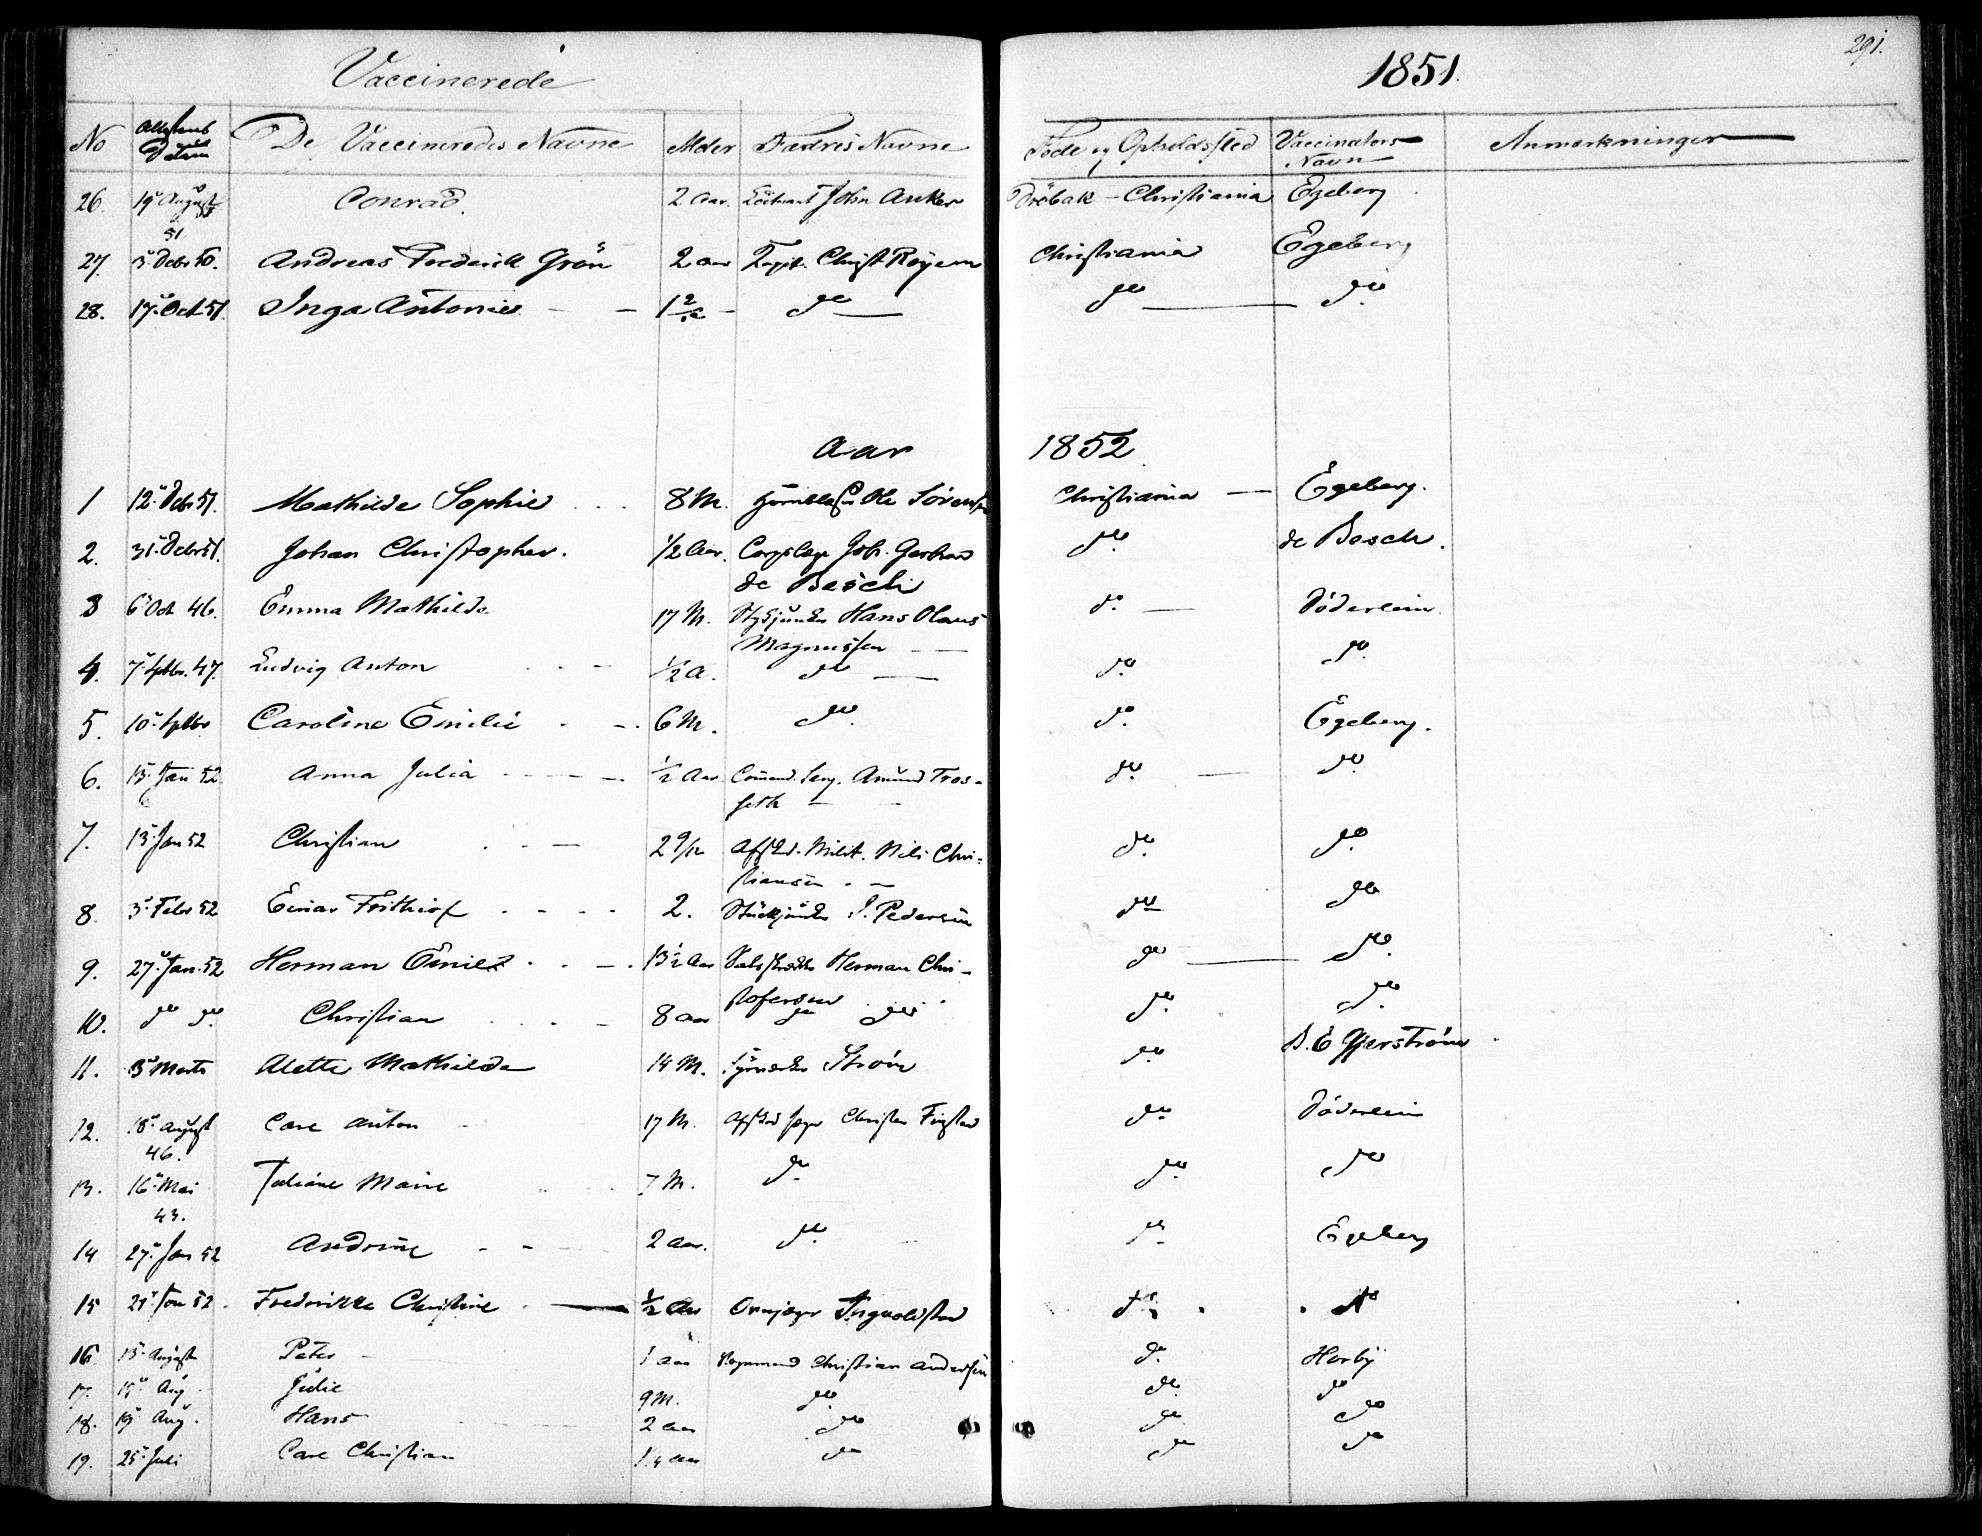 Vaccinerede
1851.
291.
No
Attestens Datum
De Vaccineredes Navne
Alder
Fædres Navne
Føde og Opholdssted
Vaccinators Navn
Anmærkninger
26. 19 August 51 Conrad. 2 Aar. Lieutnant John Anker Drøbak - Christiania Egeberg
27. 5 Debr 50. Andreas Frederik Grön 2 aar Kapt. Christ Røyem Christiania Egeberg
28. 17 Oct 51. Inga Antonie 1 2/12 do do do
Aar 1852
1 12 Debr 51. Mathilde Sophie 8 M. Ole Sørensen Christiania Egeberg.
2. 31 Debr 51. Johan Christopher. 1/2 Aar. Corpslæge Joh. Gerhard do de Besch.
de Besch
3 6 Oct 46. Emma Mathilde 17 M. Stykjunker Hans Olaus do Döderlein.
Magnussen
4. 7 Septbr. 47. Ludvig Anton 1/2 a. do do do
5. 10 Septbr Caroline Emilie 6 M. do do Egeberg.
6. 15 Jan 52 Anna Julia 1/2 Aar Comand. Serg. Amund Tros- do do
seth
7. 13 Jan 52 Christian 2 9/12 Afsked. Milit. Nils Chri- do do
stiansen
8. 3 Febr 52 Einar Frithiof 2. Stückjunker J. Pedersen do do
9. 27 Jan. 52 Herman Emil 13 1/2 Aar Herman Chri- do do
stofersen
10. do do Christian 8 aar do do do do
11. 3 Marts Alette Mathilde 14 M. Fyrverker Strøm do B. E Gjerstrøm
12. 18 August 46. Carl Anton 17 M. Afsked Jæger Christen Fingstad do Döderlein
13. 16 Mai 43. Juliane Marie 7 M. do do do
14 27 Jan 52 Andrine 2 aar. do do Egeberg
15 21 Jan 52. Frederikke Christine 1/2 Aar Ingvoldstad do do
16. 15 August Peter 1 aar Christian Andersen do Horby
17. 15 Aug Julie 9 M. do do do
18. 19 Aug. Hans 2 aar do do do
19. 25 Juli Carl Christian 1 1/4 aar do do do